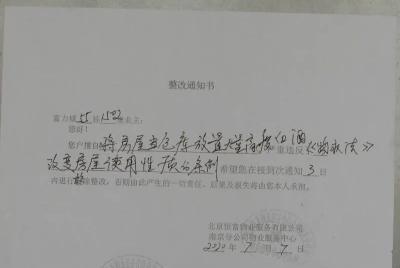 整改通知书
富力城 15 栋 1502 业主：
您好！
您户擅自将房屋当仓库放置大量高度白酒严重违反《物权法》
改变房屋使用性质的条例 希望您在接到次通知 3 日
内进行拆除整改，否则由此产生的一切责任、后果及损失将由您本人承担。
北京恒富物业服务有限公司
南京分公司物业服务中心
2020 年 7 月 7 日